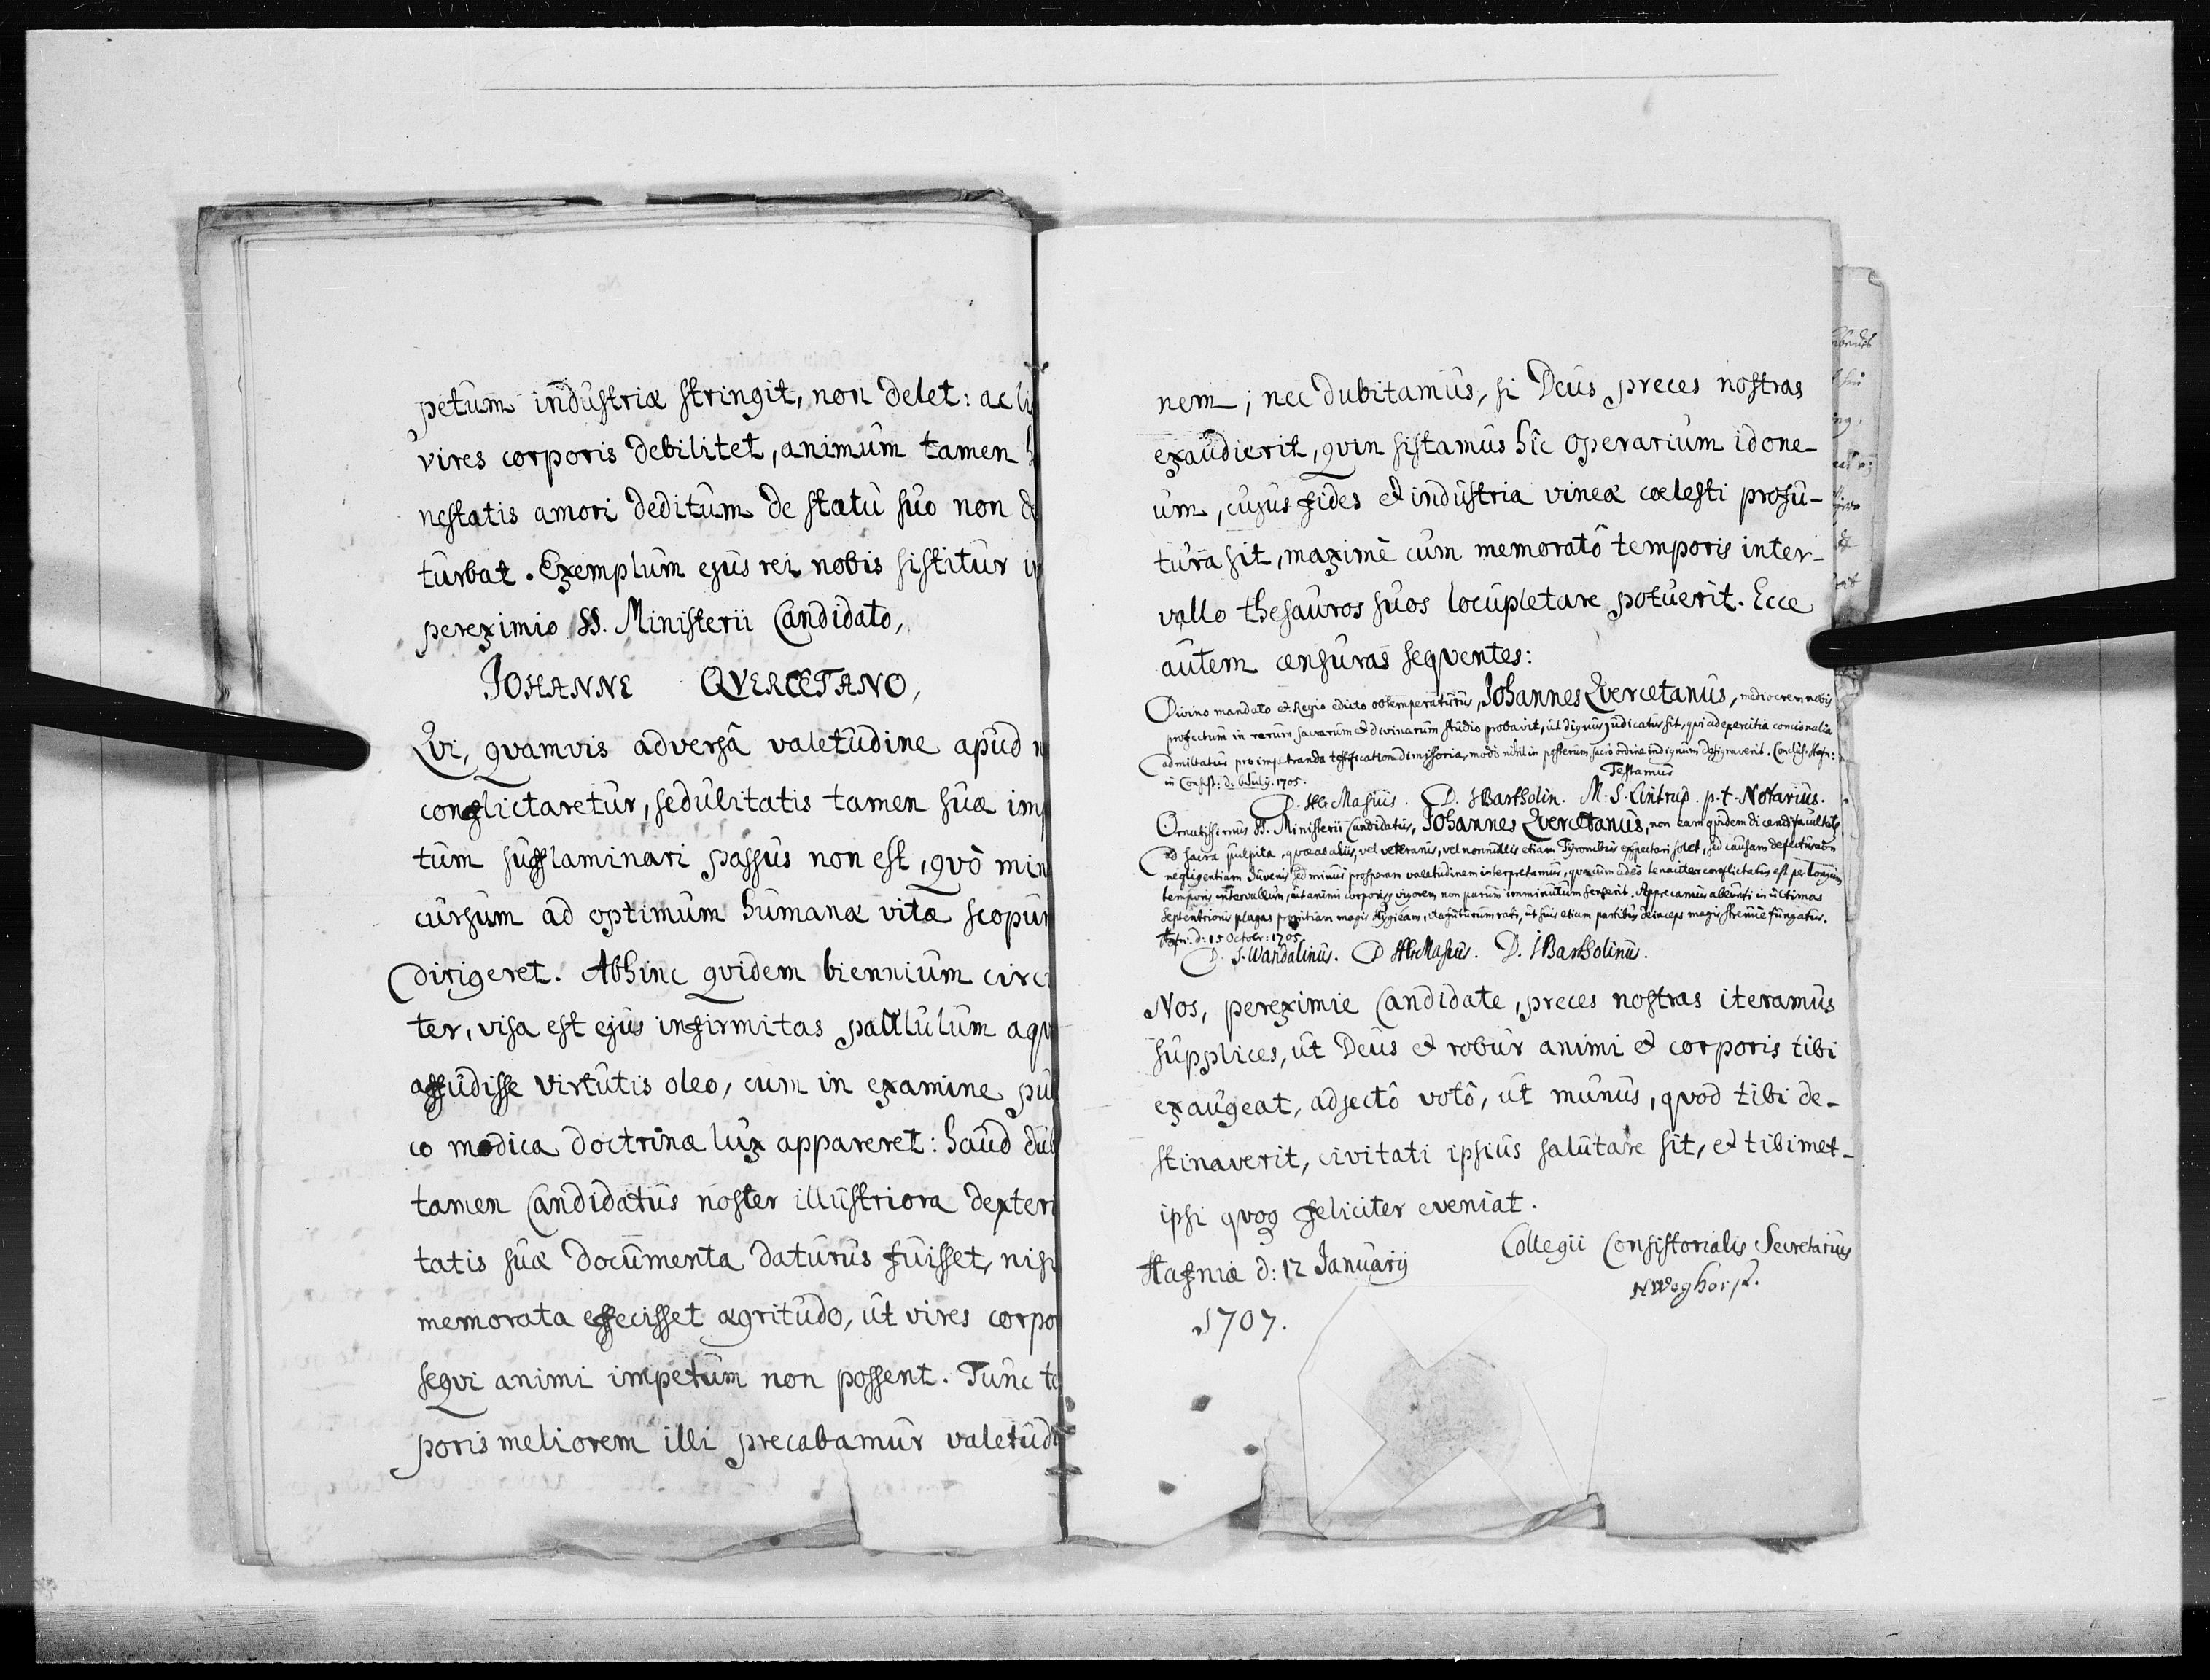 petum industriæ stringit, non delet: ac li
vires corporis debilitet, animum tamen h
nestatis amori deditum de statu suo non de
turbat. Exemplum ejus rei nobis sistitur in
pereximio SS. Ministerii Candidato,
JOHANNE QVERCETANO,
Qvi, qvamvis adversâ valetudine apud n
conflictaretur, sedulitatis tamen suæ imp
tum sufflaminari passus non est, qvò min
cursum ad optimum humanæ vitæ scopum
dirigeret. Abhinc qvidem biennium circi
ter, visa est ejus infirmitas paululum aqv
affudisse virtutis oleo, cum in examine pub
co modica doctrinæ lux appareret: haud dub
tamen Candidatus noster illustriora dexteri
tatis suæ documenta daturus fuisset, nisi
memorata effecisset ægritudo, ut vires corpo
seqvi animi impetum non possent. Tunc te
poris meliorem illi precabamur valetudi
nem; nec dubitamus, si Deus preces nostras
exaudierit, qvin sistamus hîc operarium idone
um, cujus fides et industria vineæ coelesti profu-
tura sit, maximè cum memoratô temporis inter-
vallo thesauros suos locupletare potuerit. Ecce
autem censuras seqventes:
Divino mandato et Regio edicto obtemperaturus, Johannes Qvercetanus, mediocrem nobis
profectum in rerum sacrarum et divinarum studio probavit, ut dignus judicatus sit, qvi ad exercitia concionalia
admittatur pro impetranda testificatione dimissoria, modò nihil in posterum sacro ordine indignum designaverit. Conclus. Hafn:
in Consist: d: 6 July. 1705.
Testamur
D. HGMasius. D. JBartholin. M. S. Lintrup. p.t. Notarius.
Ornatissimus SS. Ministerii Candidatus, Johannes Qvercetanus, non eam qvidem dicendi facultatem
ad sacra pulpita, qvæ ab aliis, vel veteranis, vel nonnullis etiam Tyronibus expectari solet, sed causam defectus non
negligentiam Juvenis sed minus prosperam valetudinem interpretamur, qvacum adeò tenaciter conflictatus est per longum
temporis intervallum, ut animi corporisq vigorem non parum imminutum senserit. Apprecamur abeunti in ultimas
Septentrionis plagas propitiam magis Hygieam, ita futurum rati, ut suis etiam partibus deinceps magis strenuè fungatur.
Hafn: d: 15 Octobr: 1705
D. J. Wandalinus. D HGMasius. D. JBartholinus.
Nos, pereximie Candidate, preces nostras iteramus
supplices, ut Deus et robur animi et corporis tibi
exaugeat, adjectô votô, ut munus, qvod tibi de-
stinaverit, civitati ipsius salutare sit, et tibimet-
ipsi qvoq feliciter eveniat.
Hafniæ d: 12 Januarij
1707.
Collegii Consistorialis Secretarius
HWeghorst.